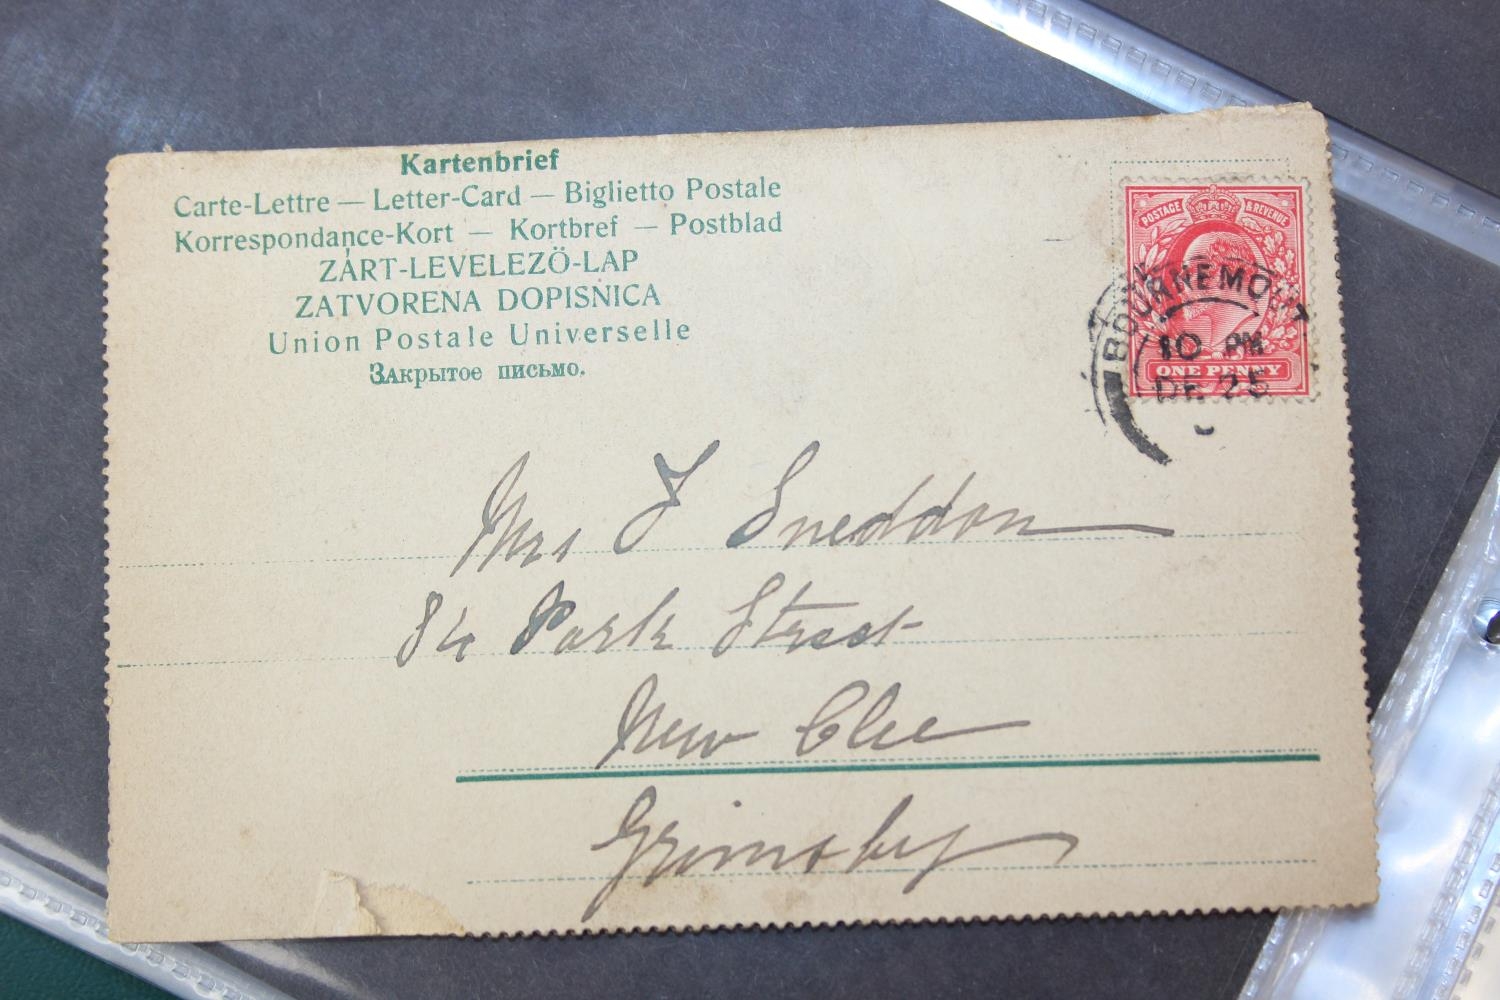 Kartenbrief
Carte-Lettre — Letter-Card — Biglietto Postale
Korrespondance-Kort — Kortbref — Postblad
ZÁRT-LEVELEZÖ-LAP
ZATVORENA DOPISNICA
Union Postale Universelle
Закрытое письмо.
POSTAGE & REVENUE
BOURNEMOUTH
10 PM
ONE PENNY
DE 25
Mrs J Sneddon
84 Park Street
New Clee
Grimsby